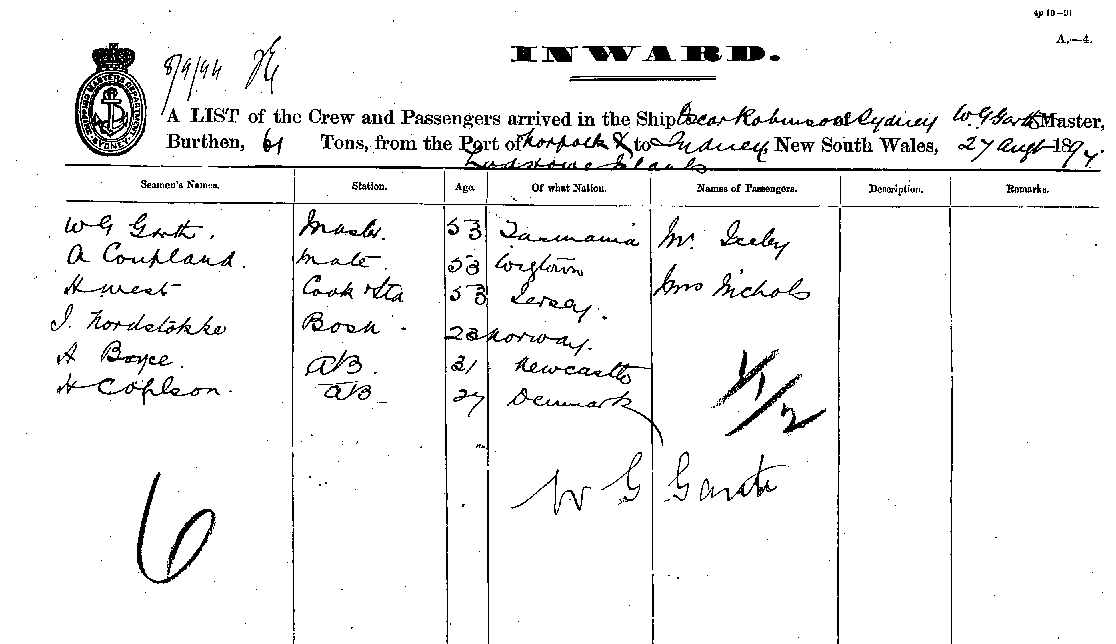 4p 10—91
A.—4.
8/9/94
INWARD.
SHIPPING MASTERS DEPARTMENT SYDNEY
A LIST of the Crew and Passengers arrived in the Ship Oscar Robinson of Sydney W G Garth Master,
Burthen, 61 Tons, from the Port of Norfolk & to Sydney, New South Wales, 27 Augt 1894.
Islands
Seamen's Names. Station. Age. Of what Nation. Names of Passengers. Description. Remarks.
W G Garth. Master. 53 Tasmania Mr.
A Coupland. Mate. 53 Wigtown
H West Cook & Std 53 Jersey. Mrs Nichols
J. Nordstokke Bosn. 23 Norway.
A Boyce. AB. 31 Newcastle
H Coplson. AB 27 Denmark
1/1/2
W G Garth
6